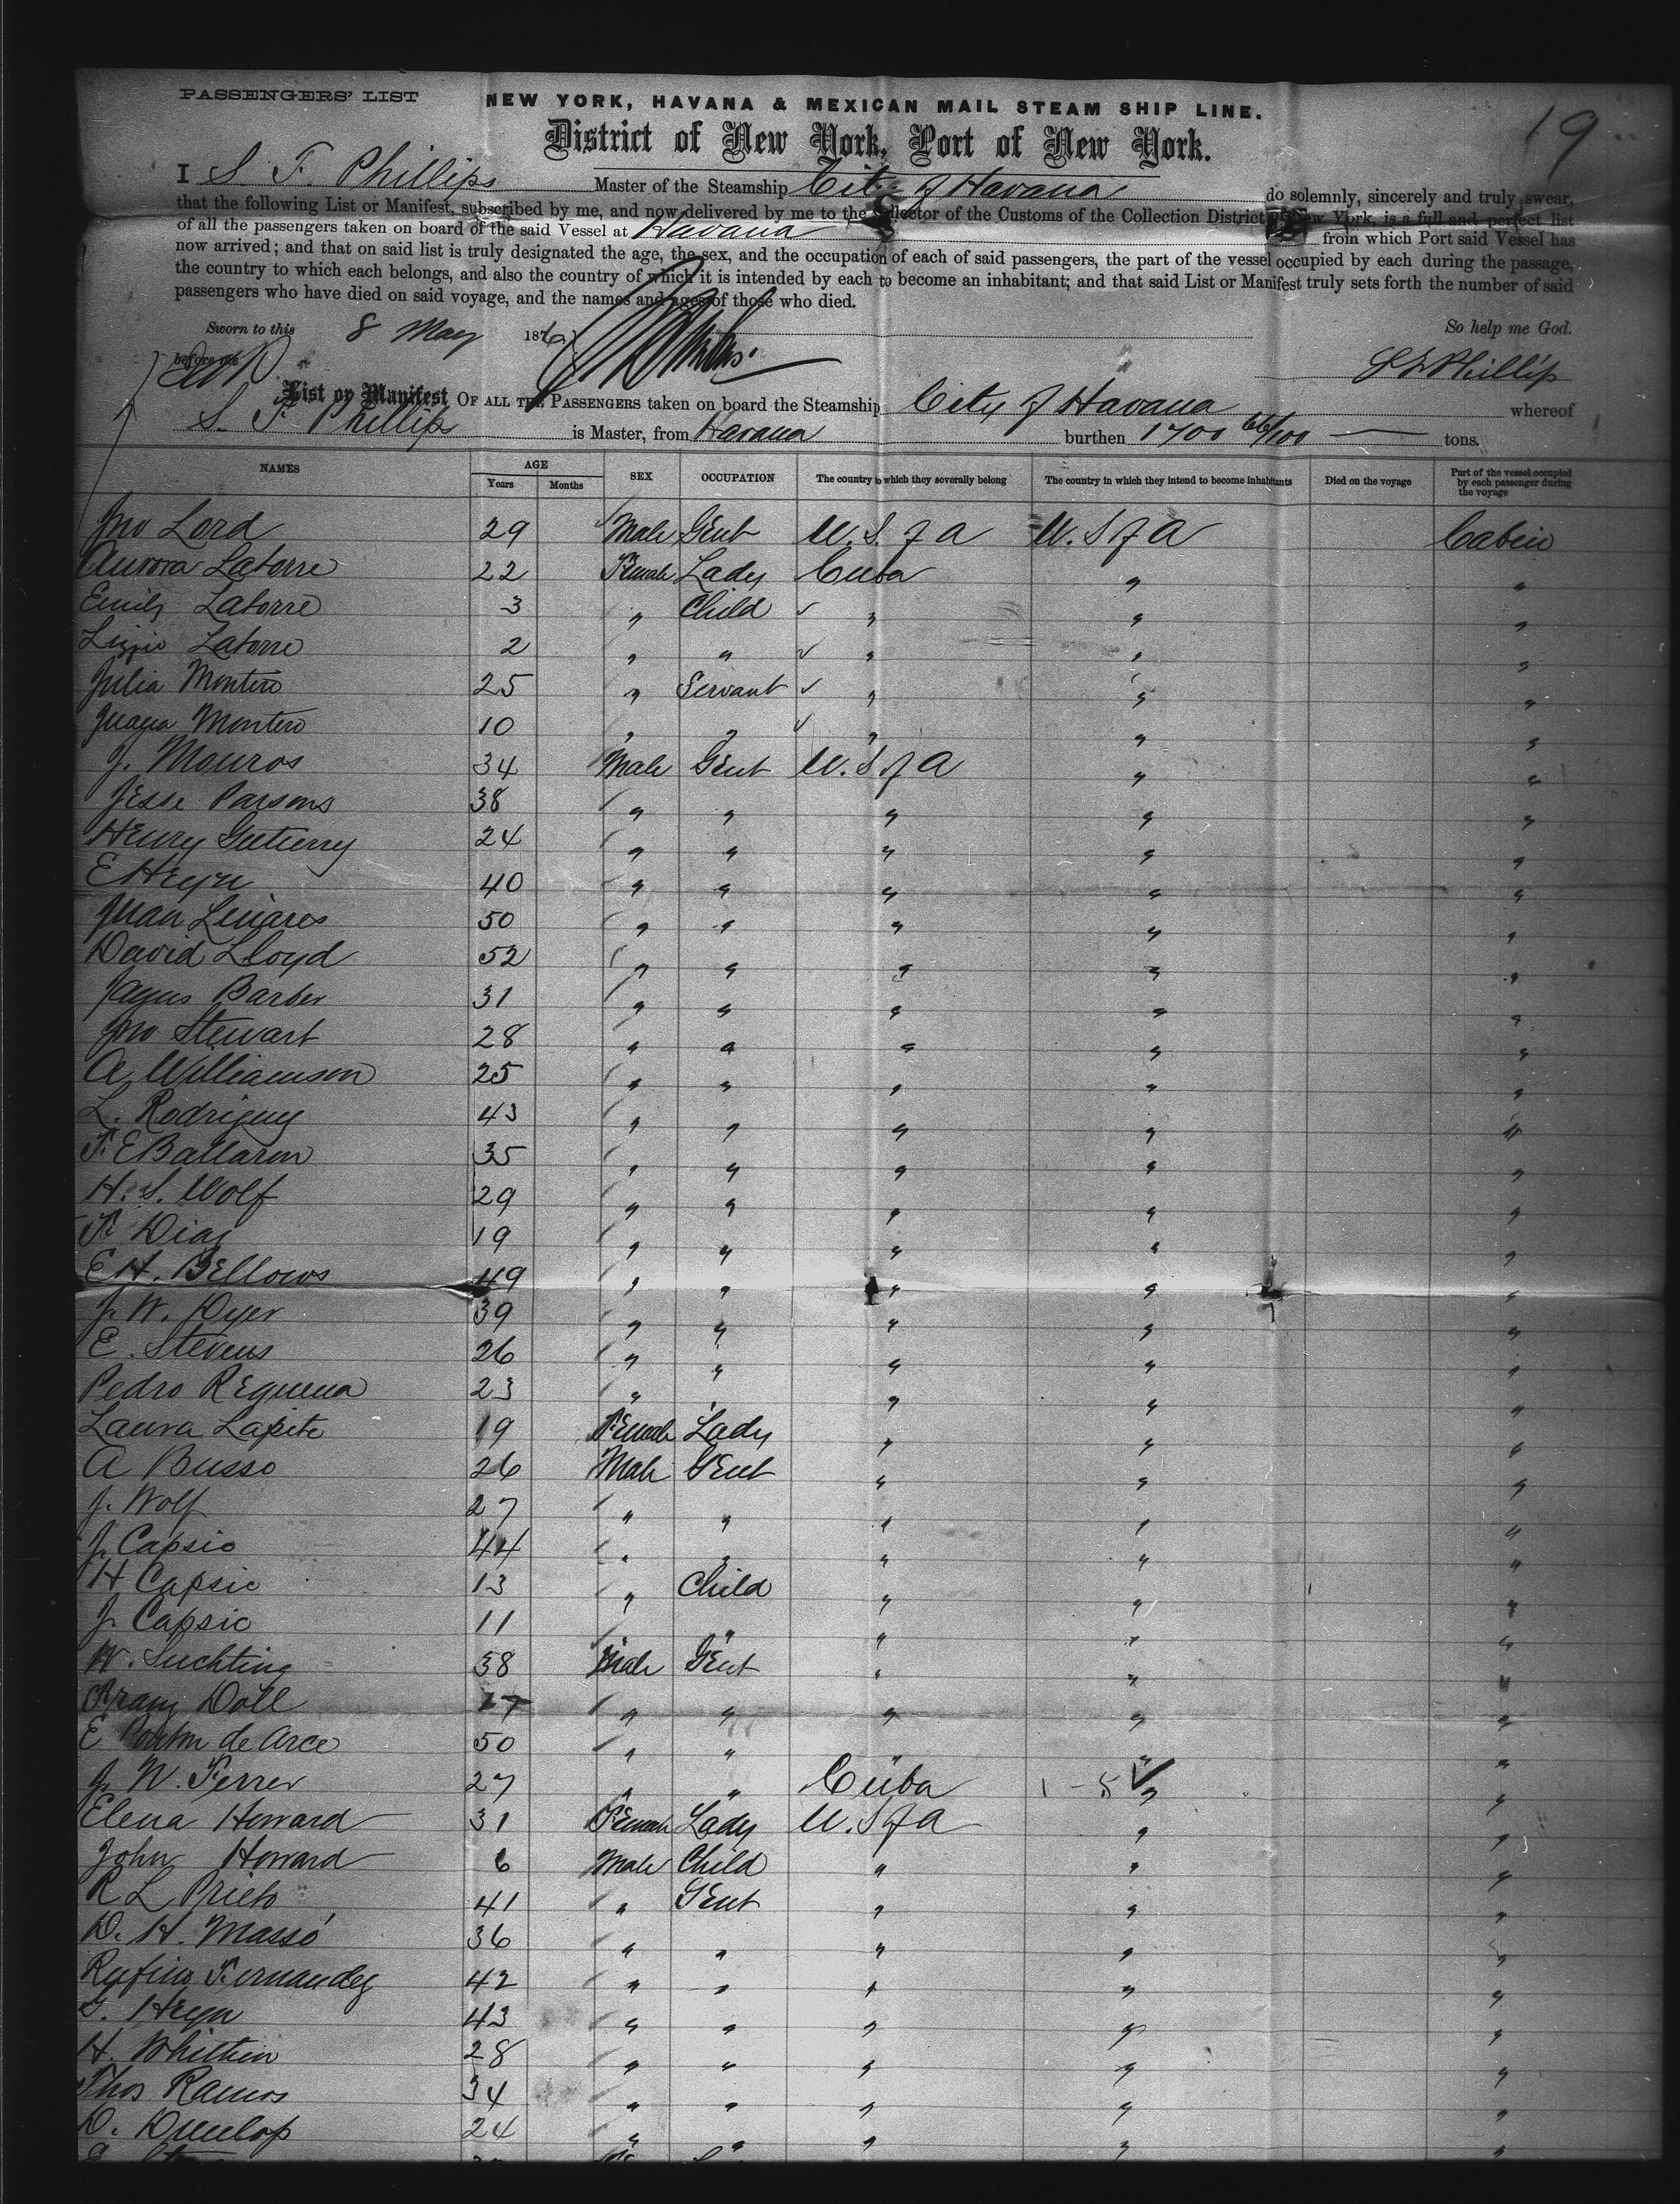 PASSENGERS' LIST
19
NEW YORK, HAVANA & MEXICAN MAIL STEAM SHIP LINE.
District of New York, Port of New York.
I S. F. Phillips Master of the Steamship City of Havana do solemnly, sincerely and truly swear,
that the following List or Manifest, subscribed by me, and now delivered by me to the Collector of the Customs of the Collection District of New York, is a full and perfect list
of all the passengers taken on board of the said Vessel at Havana from which Port said Vessel has
now arrived; and that on said list is truly designated the age, the sex, and the occupation of each of said passengers, the part of the vessel occupied by each during the passage,
the country to which each belongs, and also the country of which it is intended by each to become an inhabitant; and that said List or Manifest truly sets forth the number of said
passengers who have died on said voyage, and the names and ages of those who died.
Sworn to this 8 May 1876 So help me God.
before me
S F Phillips
List or Manifest OF ALL THE PASSENGERS taken on board the Steamship City of Havana whereof
S. F. Phillips is Master, from Havana burthen 1700 66/100 tons.
NAMES AGE Years Months SEX OCCUPATION The country to which they severally belong The country in which they intend to become inhabitants Died on the voyage Part of the vessel occupied by each passenger during the voyage
Jno Lord 29 Male Gent U. S. of A U. S of A Cabin
Aurora Latorre 22 Female Lady Cuba " "
Emily Latorre 3 " Child " " "
Lizzie Latorre 2 " " " " "
Julia Montero 25 " Servant " " "
Juana Montero 10 " " " " "
J. Mouros 34 Male Gent U. S of A " "
Jesse Parsons 38 " " " " "
Henry Gutierrz 24 " " " " "
E Heyn 40 " " " " "
Juan Linares 50 " " " " "
David Lloyd 52 " " " " "
Barber 31 " " " " "
Jno Stewart 28 " " " " "
A Williamson 25 " " " " "
L. Rodriguez 43 " " " " "
F. E Ballaron 35 " " " " "
H. S. Wolf 29 " " " " "
F. Diaz 19 " " " " "
E H. Bellows 49 " " " " "
J. W. Dyer 39 " " " " "
E. Stevens 26 " " " " "
Pedro Requena 23 " " " " "
Laura Lapite 19 Female Lady " " "
A Busso 26 Male Gent " " "
J. Wolf 27 " " " " "
J. Capsio 44 " " " " "
H Capsio 13 " Child " " "
J. Capsio 11 " " " " "
W. Suchting 38 Male Gent " " "
Franz Doll " " " " "
E Ponton de Arce 50 " " " " "
J. W. Ferrer 27 " " Cuba " "
Elena Howard 31 Female Lady U. S of A " "
John Howard 6 Male Child " " "
R L Prieto 41 " Gent " " "
D. H. Massó 36 " " " " "
Rufino Fernandez 42 " " " " "
G. Heyn 43 " " " " "
H. Whithin 28 " " " " "
Thos Ramos 34 " " " " "
D. Dunlop 24 " " " " "